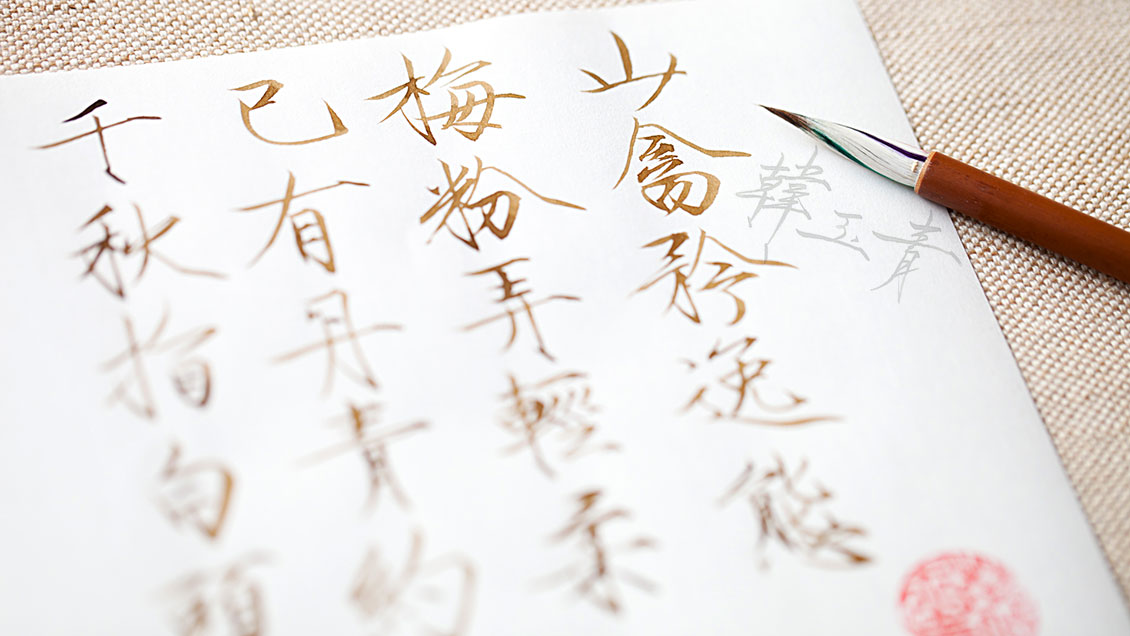 山禽矜逸態
梅粉弄輕柔
已有丹青約
千秋指白頭
韓玉青